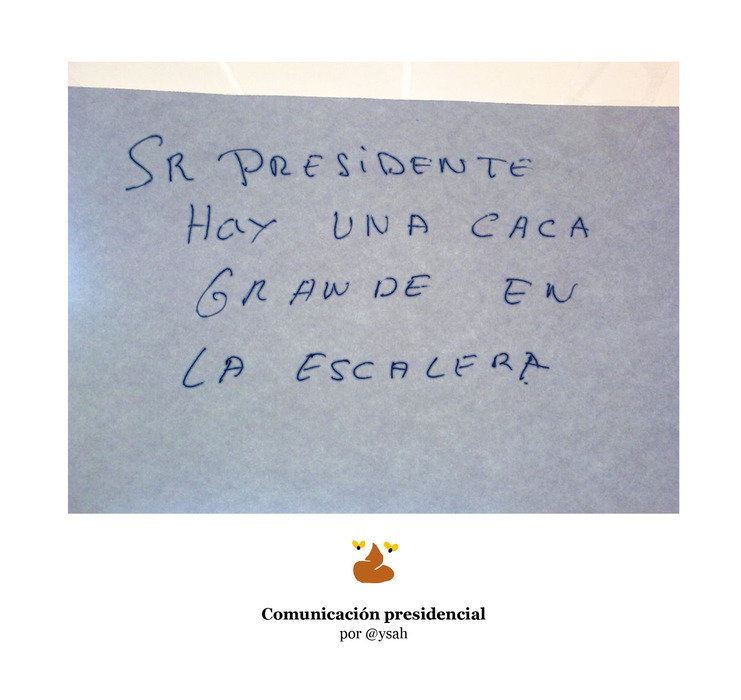 SR PRESiDENTE
HaY UNA CACA
GRANDE EN
LA ESCALERA
Comunicación presidencial
por @ysah